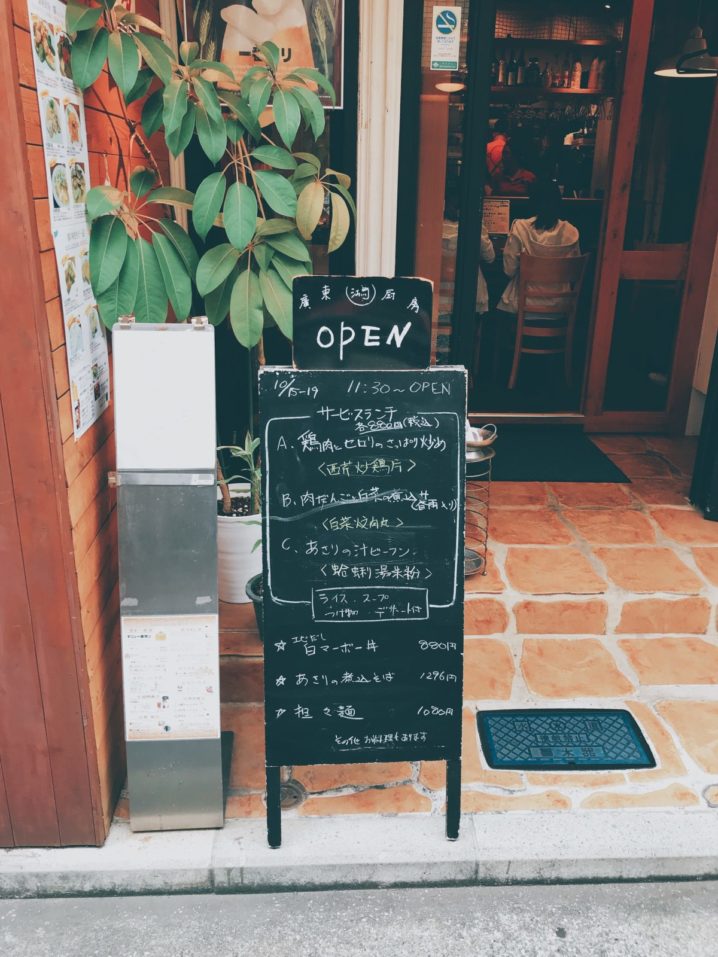 一番搾り
廣東
厨房
OPEN
10/15-19 11:30〜OPEN
サービスランチ
各880円(税込)
A. 鶏肉とセロリのさっぱり炒め
〈西芹炒鶏片〉
B. 肉だんごと白菜の煮込み
(春雨入り)
〈白菜炆肉丸〉
C. あさりの汁ビーフン
〈蛤蜊湯米粉〉
ライス・スープ
つけ物・デザート付
エビだし
☆ 白マーボー丼 880円
☆ あさりの煮込そば 1296円
☆ 担々麺 1080円
その他お料理もあります